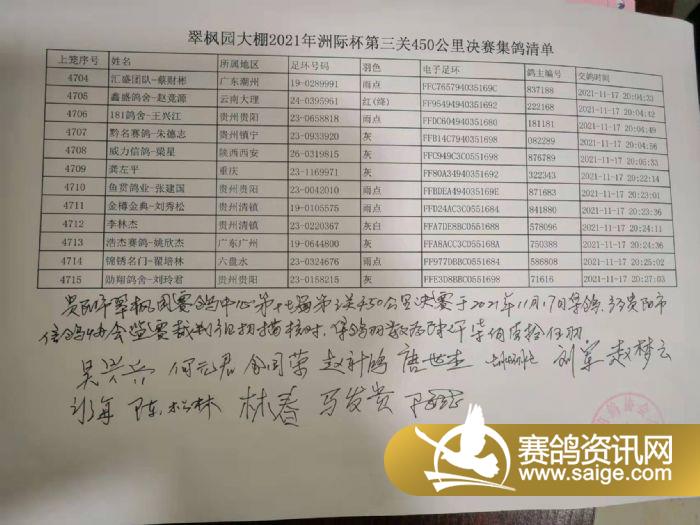 翠枫园大棚2021年洲际杯第三关450公里决赛集鸽清单
上笼序号 姓名 所属地区 足环号码 羽色 电子足环 鸽主编号 交鸽时间
4704 汇盛团队-蔡财彬 广东潮州 19-0289991 雨点 FFC765794035169C 837188 2021-11-17 20:04:33
4705 鑫盛鸽舍-赵竞源 云南大理 24-0395961 红(绛) FF95494940351692 222168 2021-11-17 20:04:42
4706 181鸽舍-王兴江 贵州贵阳 23-0658818 雨点 FFDC604940351680 181181 2021-11-17 20:04:49
4707 黔名赛鸽-朱德志 贵州镇宁 23-0933920 灰 FFB14C7940351698 082289 2021-11-17 20:04:56
4708 威力信鸽-梁星 陕西西安 26-0319815 灰 FFC949C3C0551698 876789 2021-11-17 20:05:33
4709 龚左平 重庆 23-1169971 灰 FF80A34940351698 322343 2021-11-17 20:22:14
4710 鱼贯鸽业-张建国 贵州贵阳 23-0042010 雨点 FFBDEA494035169E 871683 2021-11-17 20:23:01
4711 金樽金典-刘秀松 贵州清镇 19-0105210 雨点 FFD24AC3C0551684 841880 2021-11-17 20:23:36
4712 李林杰 贵州清镇 23-0220367 灰白 FFA7DE8BC0551698 576078 2021-11-17 20:24:11
4713 浩杰赛鸽-姚欣杰 广东广州 19-0644800 灰 FFA8ACC3C055168A 750388 2021-11-17 20:24:36
4714 锦绣名门-翟培林 六盘水 23-0324676 雨点 FF977DBBC0551684 586808 2021-11-17 20:25:02
4715 勋翔鸽舍-刘玲君 贵州贵阳 23-0158215 灰 FFE3D8BBC0551698 71616 2021-11-17 20:27:03
贵阳市翠枫园赛鸽中心第十七届第三关450公里决赛于2021年11月17日集鸽,经贵阳市
信鸽协会监赛裁判组扫描核对,
何元君 唐世杰 刘军 赵梦云
陈松林 林春 马发贵
赛鸽资讯网
www.saige.com